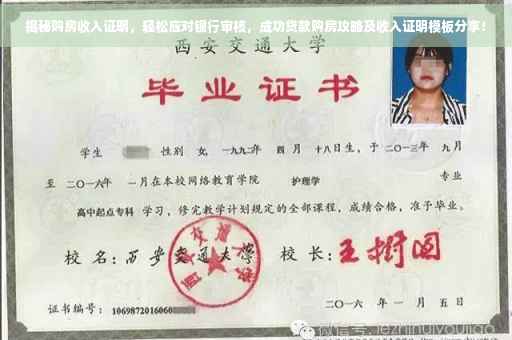 揭秘购房收入证明，轻松应对银行审核，成功贷款购房攻略及收入证明模板分享！
西安交通大学
毕业证书
学生 性别 女, 一九九二年 四月 十八日生, 于二〇一三年 九月
至 二〇一六年 一月在本校网络教育学院 护理学 专业
高中起点专科 学习, 修完教学计划规定的全部课程, 成绩合格, 准予毕业。
校名: 西安交通大学 校长: 王树国
证书编号: 1069872016060
二〇一六年 一月 五日
微信号: jezhinuiyoujiao